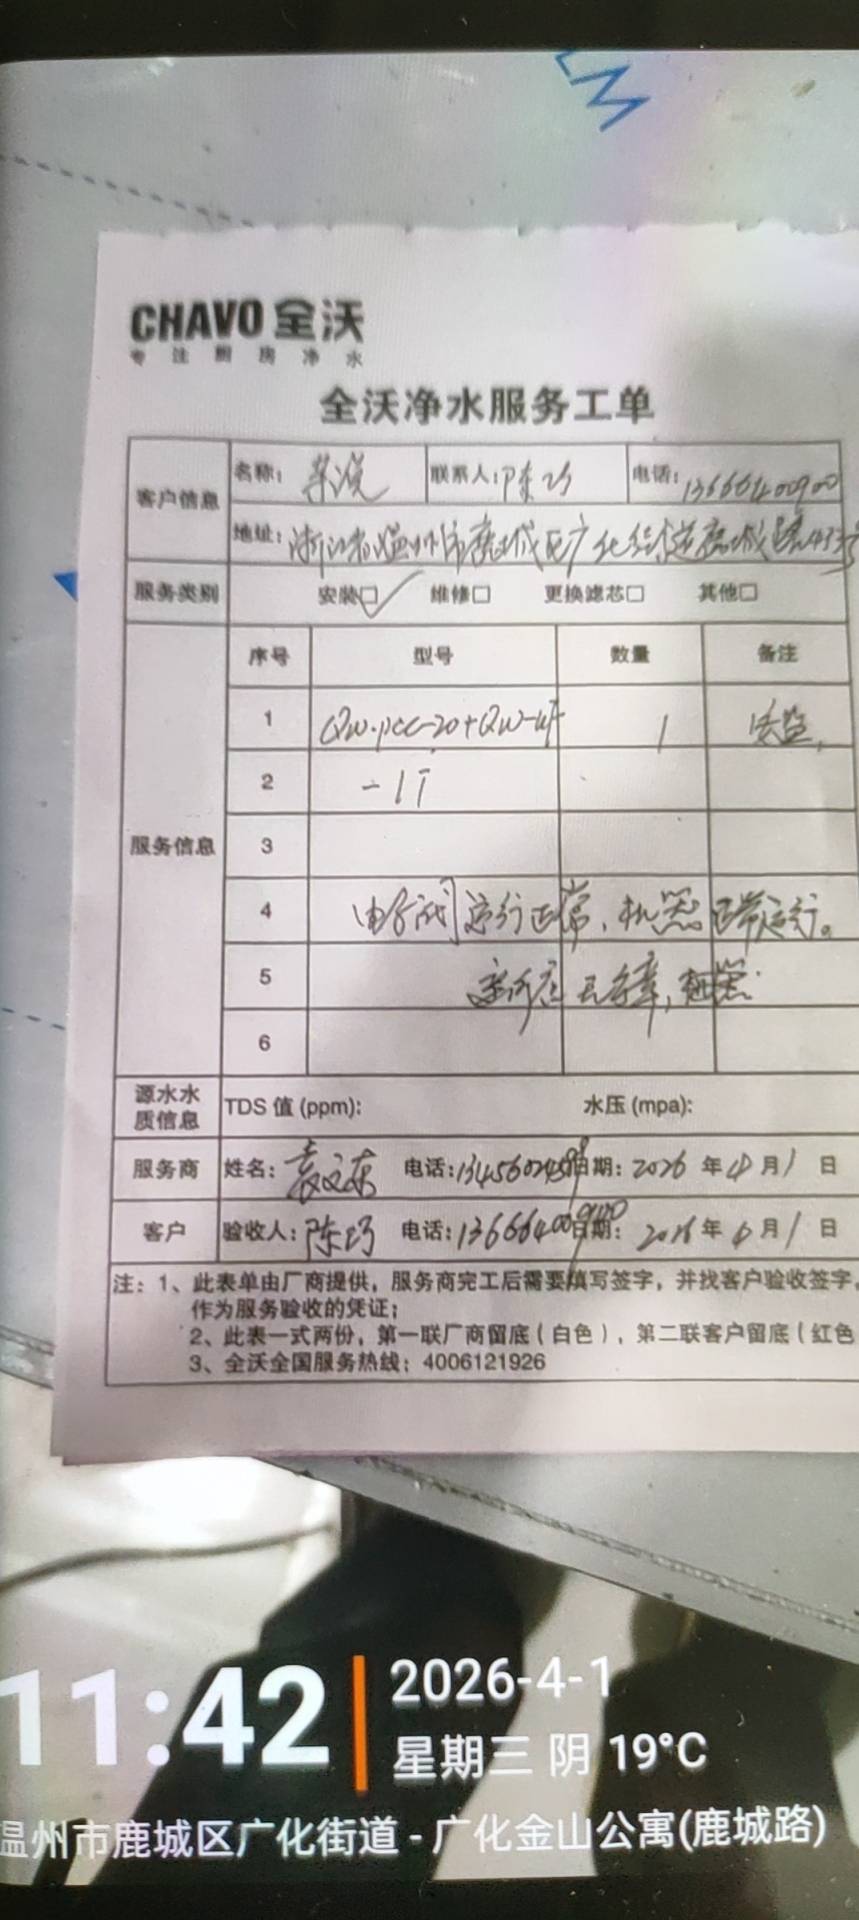 CHAVO 全沃
专注厨房净水
全沃净水服务工单
客户信息 名称: 联系人:陈巧 电话:13666400900
地址:浙江省温州市鹿城区广化街道鹿城路
服务类别 安装□ 维修□ 更换滤芯□ 其他□
服务信息 序号 型号 数量 备注
1 QW-pcc-20+QW-uf 1
2 -1T
3
4 电子阀运行正常,机器正常运行。
5
6
源水水质信息 TDS 值 (ppm): 水压 (mpa):
服务商 姓名:袁文东 电话: 日期:2026 年 4 月 1 日
客户 验收人:陈巧 电话:13666400900 日期:2026 年 月 1 日
注:1、此表单由厂商提供,服务商完工后需要填写签字,并找客户验收签字,
作为服务验收的凭证;
2、此表一式两份,第一联厂商留底(白色),第二联客户留底(红色
3、全沃全国服务热线:4006121926
11:42
2026-4-1
星期三 阴 19°C
温州市鹿城区广化街道 - 广化金山公寓(鹿城路)